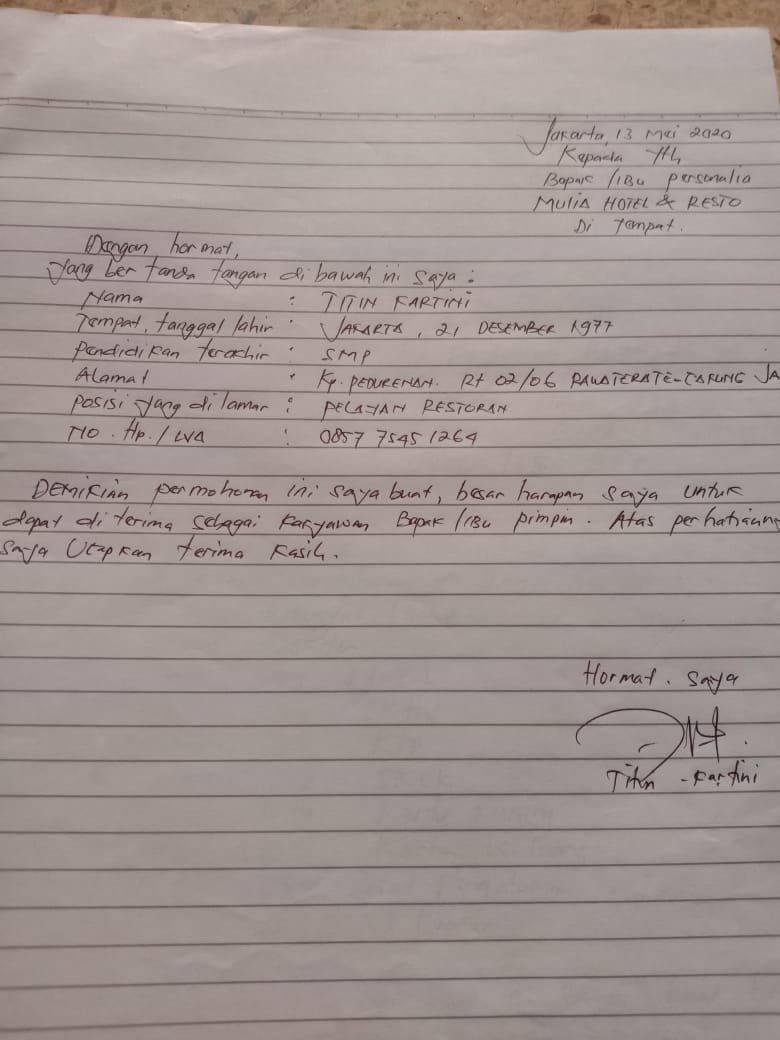 Jakarta, 13 Mei 2020
Kepada Yth
Bapak /IBu personalia
MULIA HOTEL & RESTO
Di Tempat.
Dengan hormat,
Yang ber tanda tangan di bawah ini saya :
Nama : TITIN KARTINI
Tempat, tanggal lahir : JAKARTA, 21 DESEMBER 1977
Pendidikan terakhir : SMP
Alamat : Kp. PEDURENAN. Rt 02/06 RAWATERATE - CAKUNG JA
Posisi yang di lamar : PELAYAN RESTORAN
No. Hp. / WA : 0857 7545 1264
DEMIKIAN permohonan ini saya buat, besar harapan saya untuk
dapat di terima sebagai Karyawan Bapak /IBu pimpin. Atas perhatiann
saya Ucapkan terima Kasih.
Hormat. Saya
Titin - Kartini